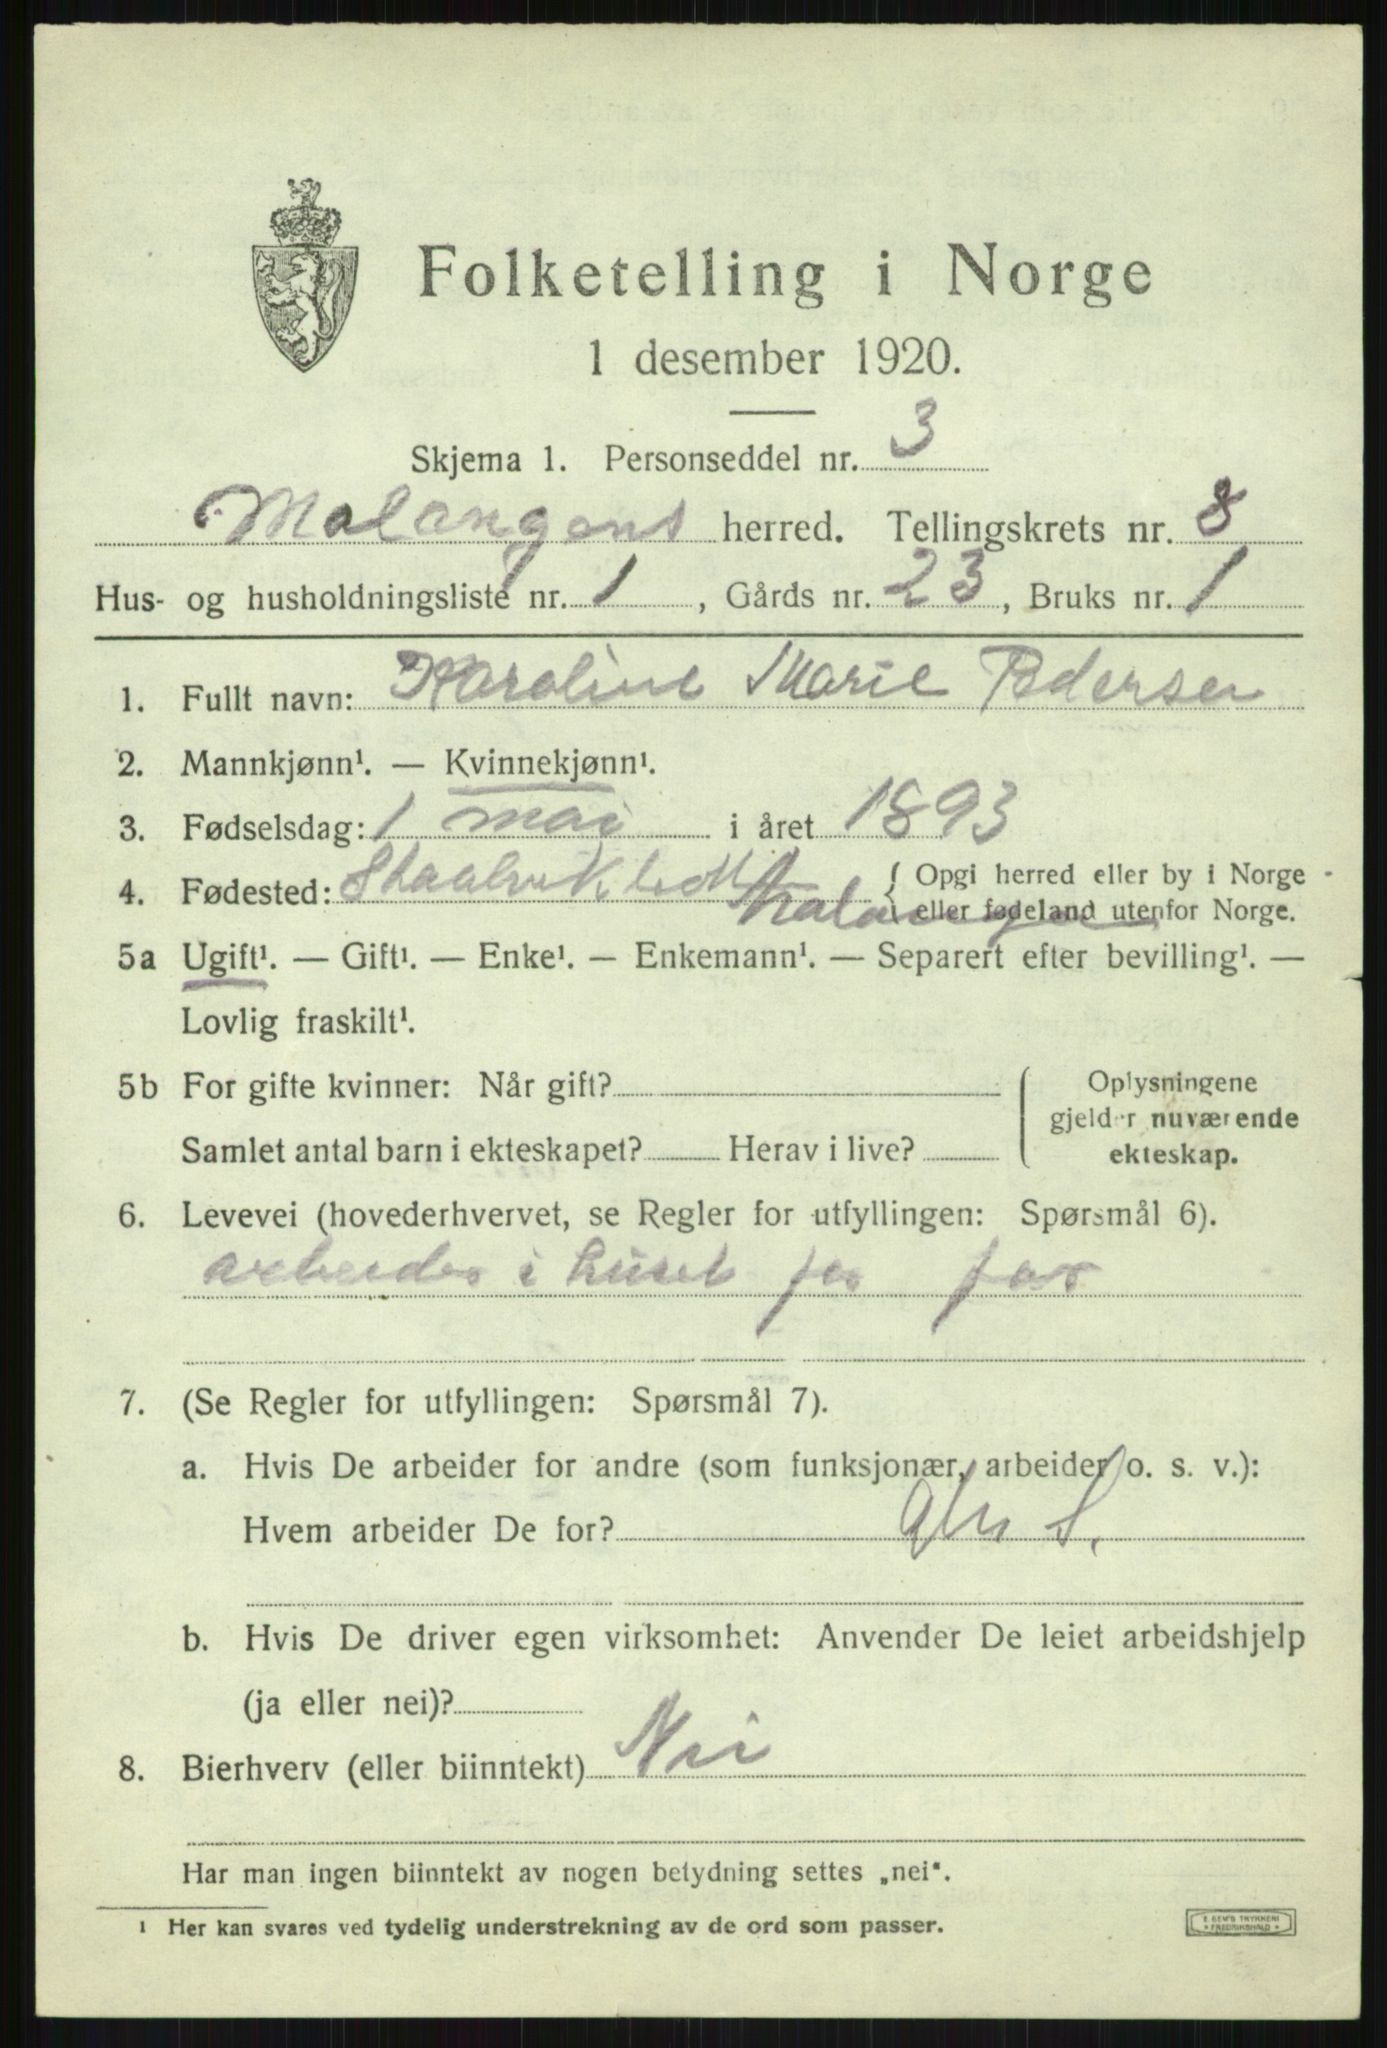 Folketelling i Norge
1 desember 1920.
Skjema 1. Personseddel nr. 3
Malangens herred. Tellingskrets nr. 8
Hus- og husholdningsliste nr. 1, Gårds nr. 23, Bruks nr. 1
1. Fullt navn: Karoline Marie Pedersen
2. Mannkjønn¹. — Kvinnekjønn¹.
3. Fødselsdag: 1 mai i året 1893
4. Fødested: Malangen { Opgi herred eller by i Norge
eller fødeland utenfor Norge.
5a Ugift¹. — Gift¹. — Enke¹. — Enkemann¹. — Separert efter bevilling¹. —
Lovlig fraskilt¹.
5b For gifte kvinner: Når gift? { Oplysningene
gjelder nuværende
Samlet antal barn i ekteskapet? Herav i live? ekteskap.
6. Levevei (hovederhvervet, se Regler for utfyllingen: Spørsmål 6).
arbeider i huset for far
7. (Se Regler for utfyllingen: Spørsmål 7).
a. Hvis De arbeider for andre (som funksjonær, arbeider o. s. v.):
Hvem arbeider De for?
b. Hvis De driver egen virksomhet: Anvender De leiet arbeidshjelp
(ja eller nei)?
8. Bierhverv (eller biinntekt) Nei
Har man ingen biinntekt av nogen betydning settes „nei".
¹ Her kan svares ved tydelig understrekning av de ord som passer.
E SEM'S TRYKKERI
* FREDRIKSHALD *